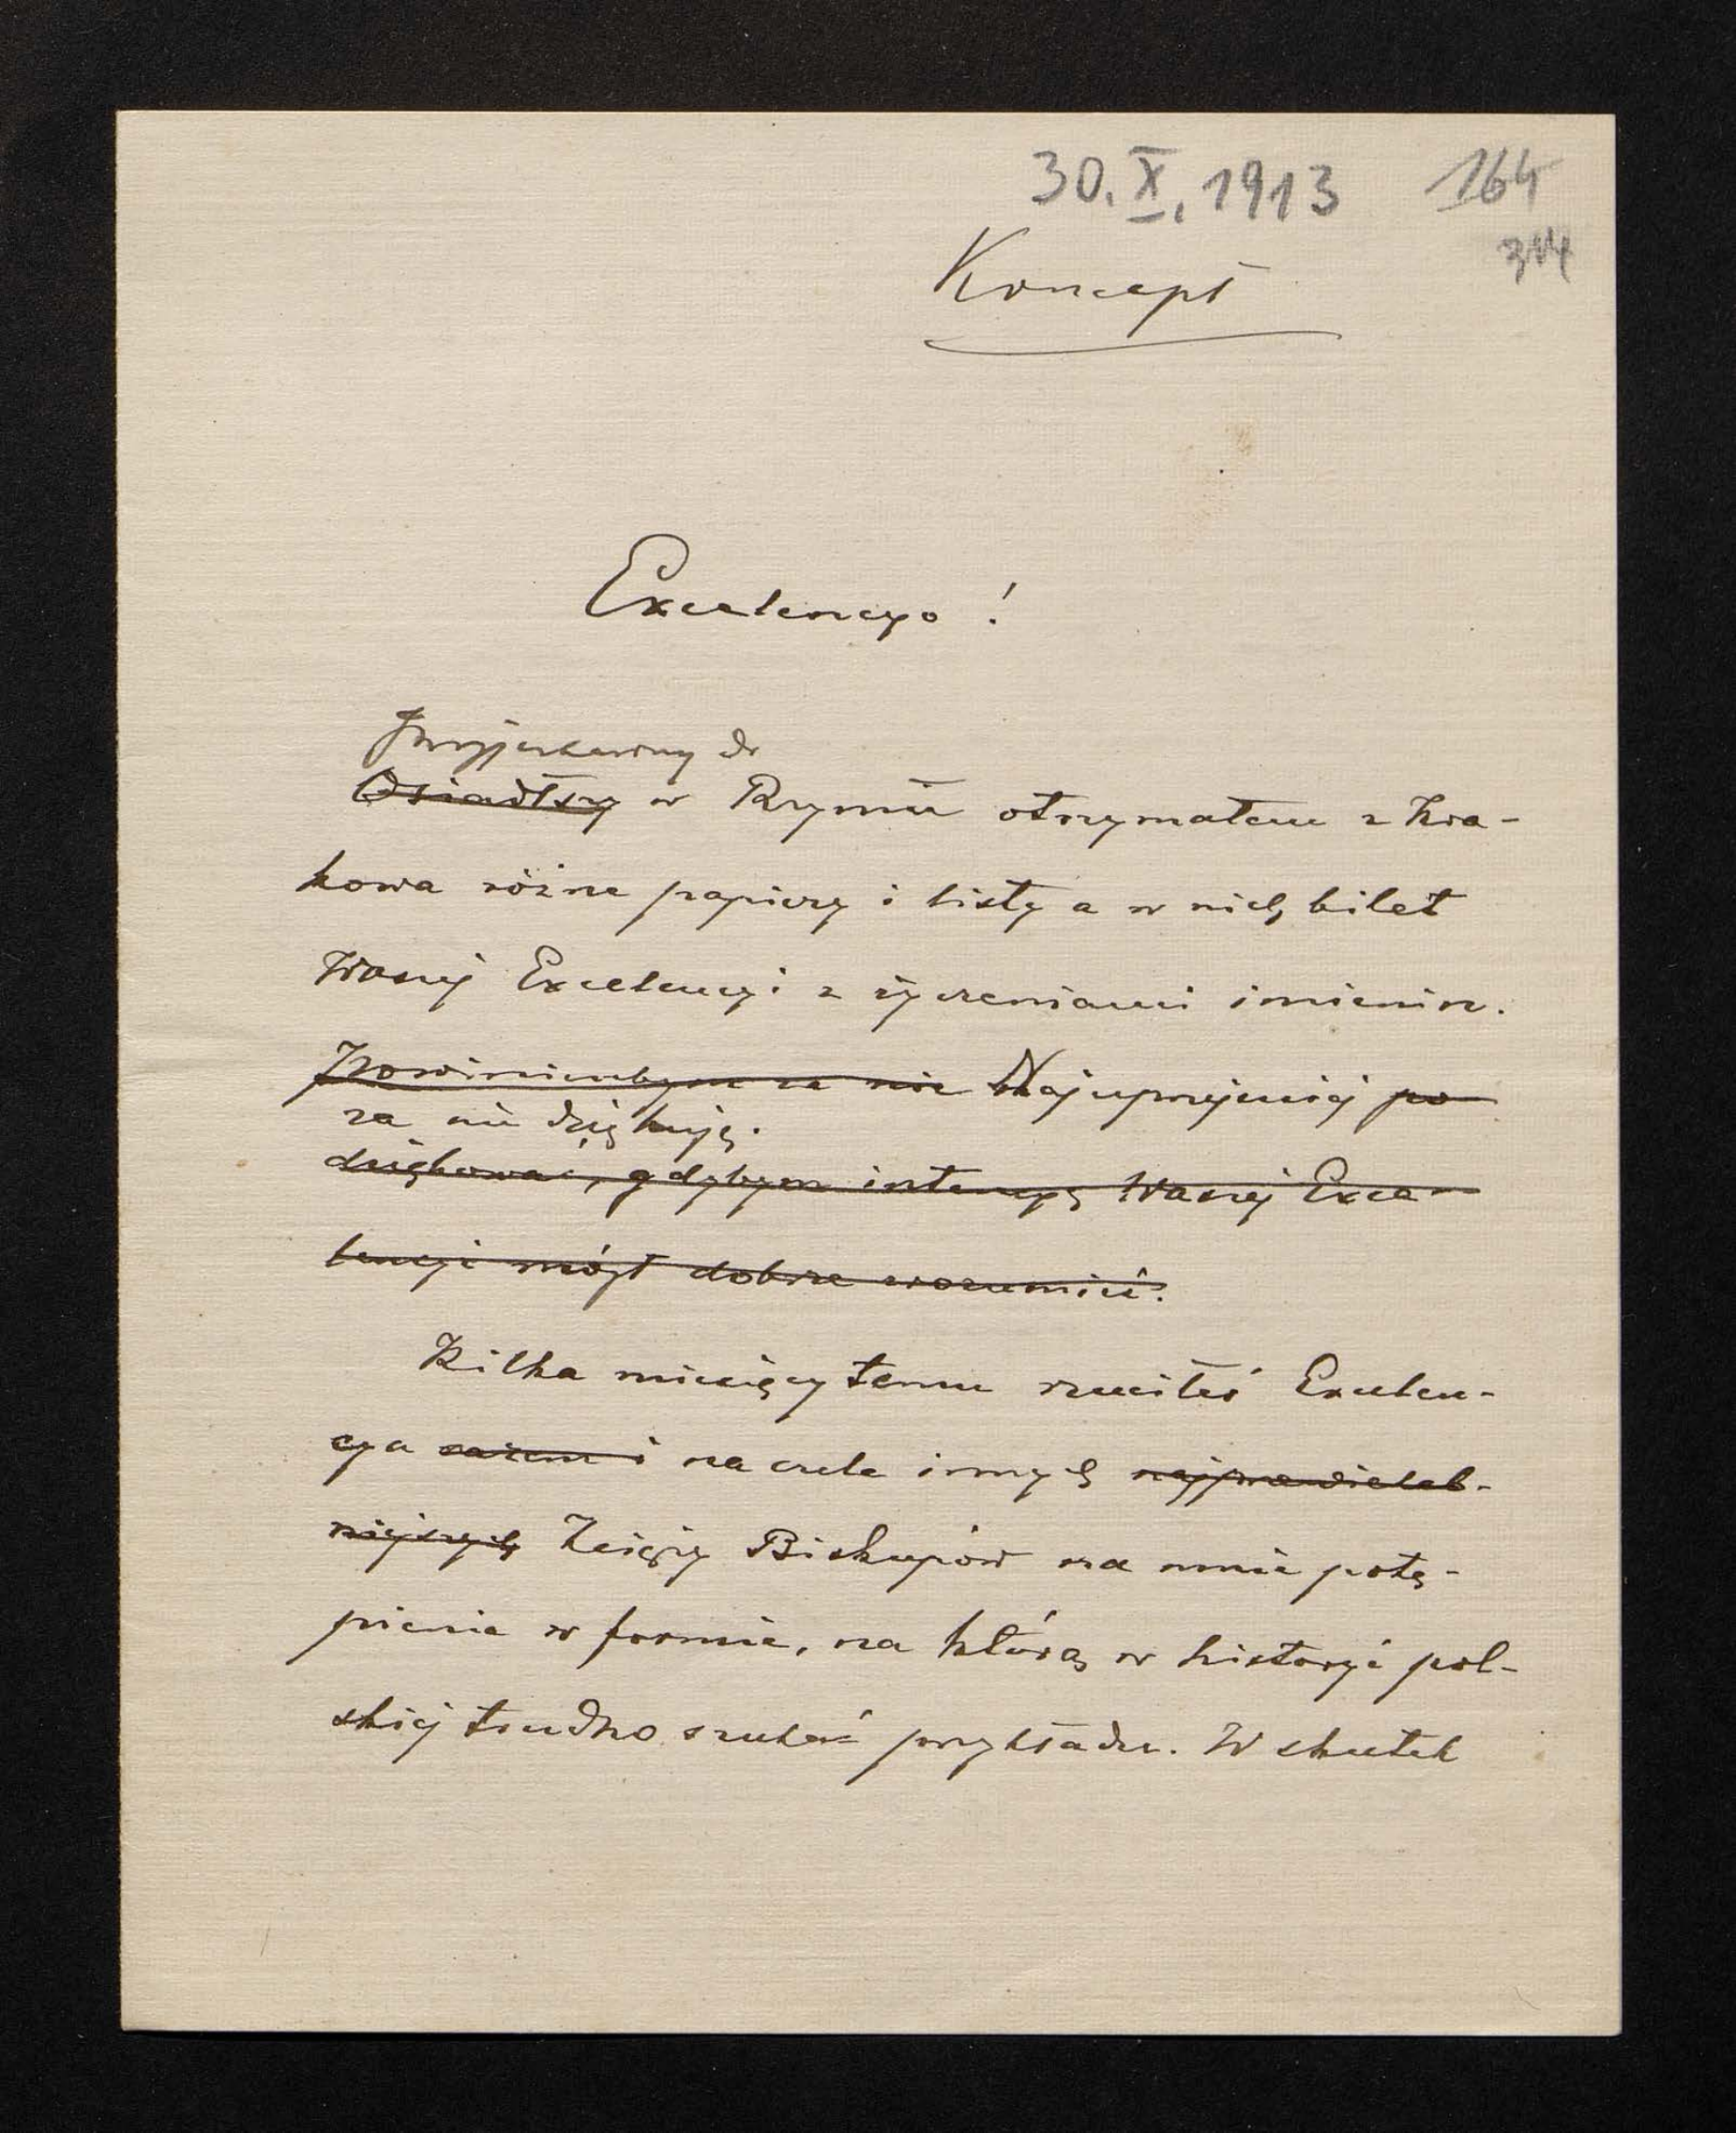 30. X. 1913 164
314
Koncept
Excelencyo!
Przyjechawszy do
Osiadłszy w Rzymie otrzymałem z Kra-
kowa różne papiery i listy a w nich bilet
Waszej Excelencyi z życzeniami imienin.
Powinienbym za nie Najuprzejmiej po
za nie dziękuję.
dziękować, gdybym intencyę Waszej Exce-
lencyi mógł dobrze zrozumieć.
Kilka miesięcy temu rzuciłeś Excelen-
cya razem i na czele innych najprzewieleb-
niejszych Księży Biskupów na mnie potę-
pienie w formie, na którą w historyi pol-
skiej trudno szukać przykładu. W skutek